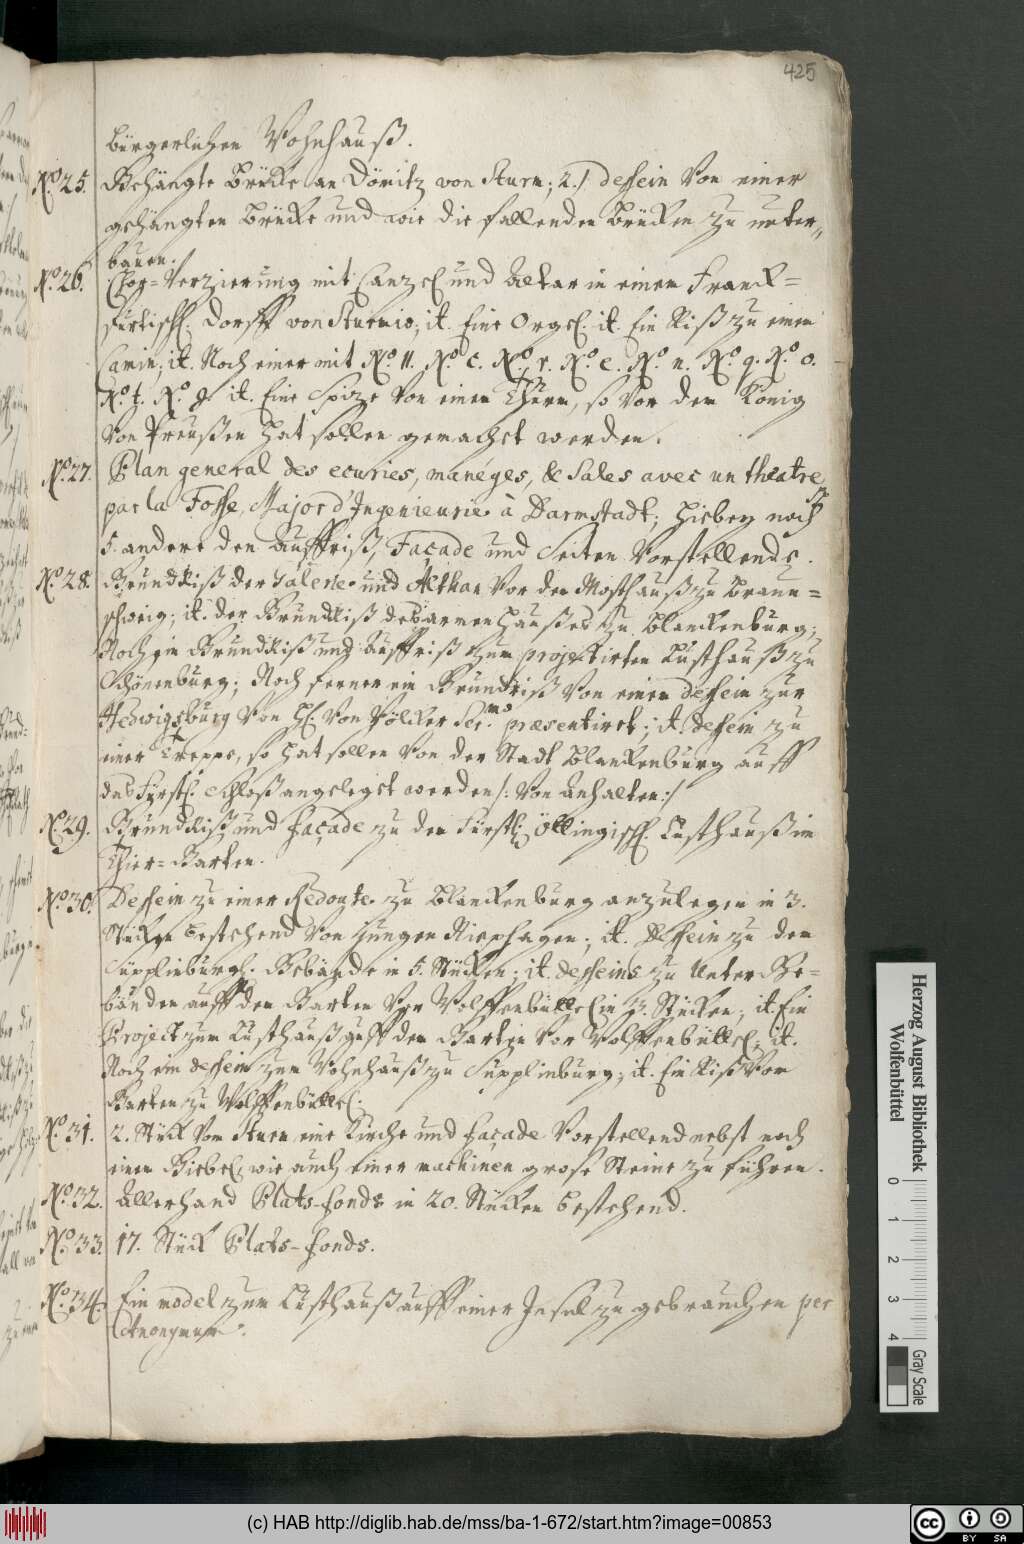 425
bürgerlichen Wohnhauß.
No. 25. Gehängte Brücke an Dömitz von Sturm; 2./ dessein Von einer
gehängten Brücke und wie die fallenden Brücken zu unter-
bauen.
No. 26. Chor-Verzierung mit Canzel und Altar in einem Franck-
furtisch. Dorff von Sturmio, it. Eine Orgel. it. Ein Riß zu einem
Camin; it. Noch einer mit No. 11. No. c. No. r. No. e. No. n. No. q. No. o.
No. t. No. it. Eine Spize Von einem Thurm, so Von dem König
Von Preußen hat sollen gemacht werden.
No. 27. Plan general des ecuries, manéges, & Sales avec un theatre
par la Fosse, Major d'Ingenieurie à Darmstadt; hiebey noch
5. andere den Auffriß, Façade und Seiten Vorstellende.
No. 28. Grundriß der Galerie und Althan Vor den Mosthauß zu Braun-
schweig; it. der Grundriß des Armenhaußes zu Blanckenburg;
Noch ein Grundriß und Auffriß zum projectirten Lusthauß zu
Schönenburg; Noch ferner ein Grundriß Von einem dessein zur
Hedwigsburg Von H. Von Völcker Ser.mo præsentiret; it. dessein zu
einer Treppe, so hat sollen Von der Stadt Blanckenburg auff
das Fürstl. Schloß angelegt werden /: Von Anhalten :/
No. 29. Grundriß und façade zu den Fürstl. Öttingisch. Lusthauß im
Thier-Garten.
No. 30. Dessein zu einer Redoute zu Blanckenburg anzulegen in 3.
Stücken bestehend Von jungen Riephagen; it. Dessein zu dem
Süpplinburgl. Gebäude in 5. Stücken; it. desseins zu Unter Ge-
bäuden auff den Garten Vor Wolffenbüttel in 3. Stücken; it. Ein
Project zum Lusthauß auff den Garten Vor Wolffenbüttel; it.
Noch ein dessein zum Wohnhauß zu Supplinburg; it. Ein Riß Vom
Garten zu Wolffenbüttel.
No. 31. 2. Stück Vom Sturm eine Kirche und façade Vorstellend nebst noch
einem Giebel, wie auch einer machinen große Steine zu führen.
No. 32. Allerhand Plats-fonds in 20. Stücken bestehend.
No. 33. 17. Stück Plats-fonds.
No. 34. Ein model zum Lusthauß auff einer Insul zu gebrauchen per
Anonymum.
Herzog August Bibliothek
Wolfenbüttel
0 1 2 3 4
Gray Scale
(c) HAB http://diglib.hab.de/mss/ba-1-672/start.htm?image=00853
cc BY SA